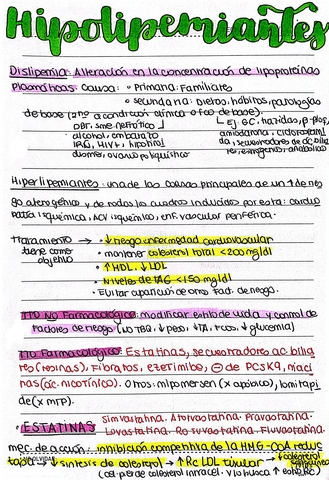 Hipolipemiantes
Dislipemia: Alteración en la concentración de lipoproteínas
Plasmáticas: causa: • Primaria: Familiares
• secundaria: Dietas, hábitos, patologías
de base (2rio a condición clínica o fco de base).
DBT, sme nefrótico
↳ Ej. GC, tiazidas, β-bloq,
alcohol, embarazo
amiodarona, ciclosporina
IRG, HIV+, hipotiroi
secuestradores de ác. bilia
dismo, ovario poliquístico
res, estrógenos, anabólico
Hiperlipemiantes: una de las causas principales de un ↑ de ries
go aterogénico y de todos los cuadros inducidos por esta: cardio
patía isquémica, ACV isquémico, enf. vascular periférica.
tratamiento → • ↓ riesgo enfermedad cardiovascular
tiene como • mantener colesterol total <200 mg/dl
objetivo • ↑ HDL, ↓ LDL
• Niveles de TAG <150 mg/dl
• Evitar aparición de otros fact. de riesgo.
TTO No Farmacológico: modificar estilo de vida y control de
Factores de riesgo (no TBQ, ↓ peso, ↓TA, ↓glucemia)
TTO Farmacológico: Estatinas, secuestradores ac. bilia
res (resinas), Fibratos, ezetimibe, ⊖ de PCSK9, niaci
nas (ác. nicotínico). Otros: mipomersen (x apo), lomitapi
de (x MTP).
• ESTATINAS Simvastatina. Atorvastatina. Pravastatina.
Lovastatina. Rosuvastatina. Fluvastatina
mec. de acción: inhibición competitiva de la HMG-COA reduc
tasa → ↓ síntesis de colesterol → ↑ Rc LDL → ↓ colesterol
(cel. pierde colesterol intracel. y lo busca ↑ Rc)